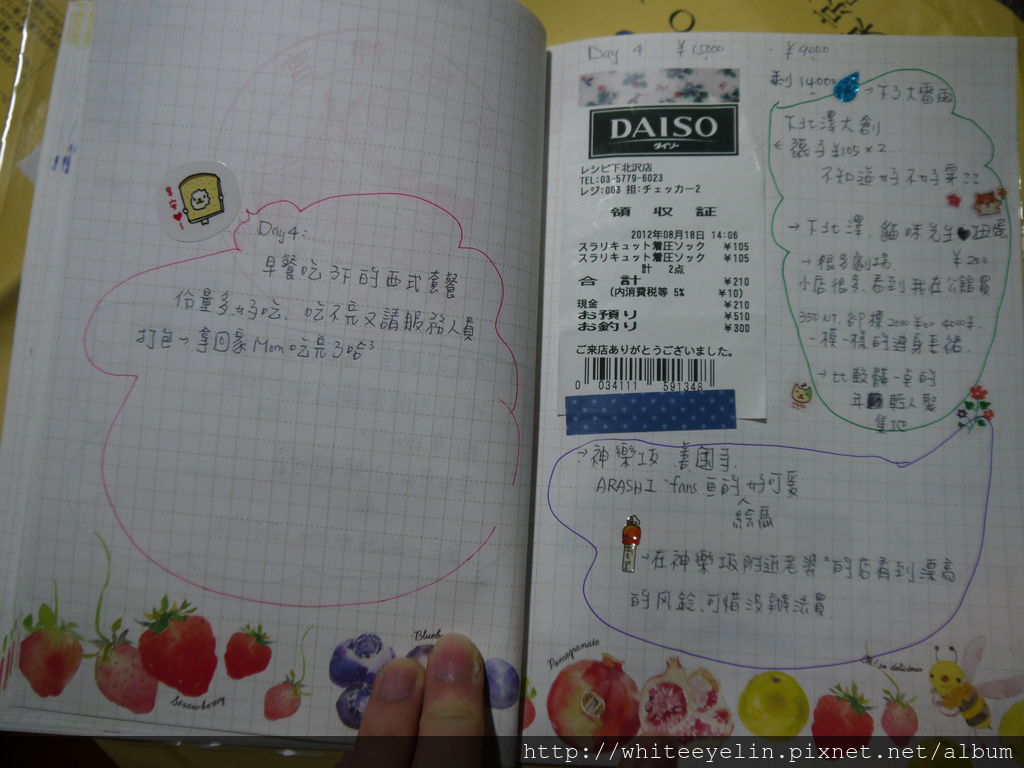 Day 4:
早餐吃3F的西式套餐
份量多好吃、吃不完又請服務人員
打包→拿回家Mom吃完了哈³
Strawberry
Blueb
Day 4 ¥15000 ¥9000
剩14000
→下了大雷雨
下北澤大創
襪子¥105×2
不知道好不好穿
→下北澤 貓咪先生♥扭蛋
→很多劇場 ¥200
小店很多,看到我在公館買
350NT.卻標2000¥or 4000¥.
一模一樣的連身長裙.
→比較髒一點的
年輕人聚
集地
DAISO
ダイソー
レシピ下北沢店
TEL:03-5779-6023
レジ:003 担:チェッカー2
領 収 証
2012年08月18日 14:06
スラリキュット着圧ソック ¥105
スラリキュット着圧ソック ¥105
計 2点
合 計 ¥210
(内消費税等 5% ¥10)
現金 ¥210
お預り ¥510
お釣り ¥300
ご来店ありがとうございました。
0 034111 591348
→神樂坂 善國寺.
ARASHI fans 寫的好可愛
絵馬
→在神樂坂附近老婆婆的店看到漂亮
的风鈴,可惜沒辦法買
Pomegranate
so delicious
http://whiteeyelin.pixnet.net/album